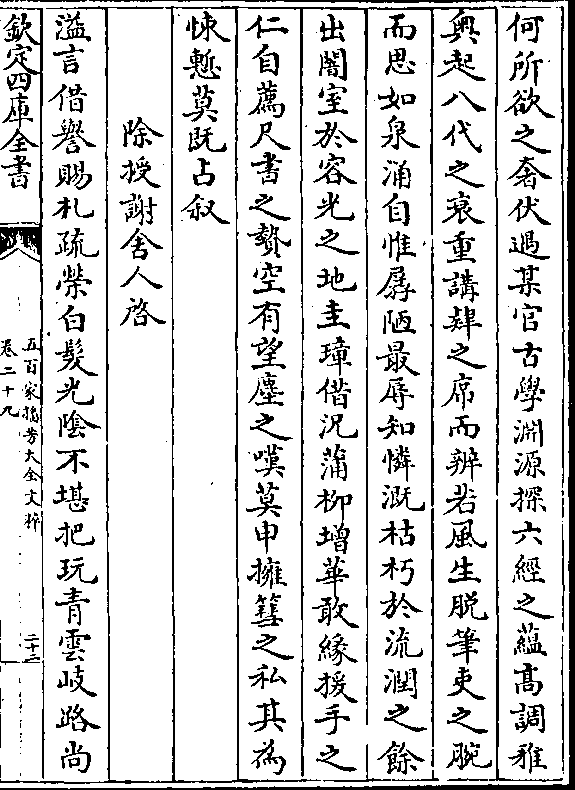 何所欲之奢伏遇某官古學淵源探六經之蘊髙調雅
奧起八代之衰重講肄之席而辨若風生脱筆吏之腕
而思如泉涌自惟孱陋最辱知憐溉枯朽於流潤之餘
出闇室於容光之地圭璋借况蒲柳増華敢緣援手之
仁自薦尺書之贄空有望塵之嘆莫申擁篲之私其為
悚慙莫既占叙
除授謝舍人啓
溢言借譽賜札疏榮白髮光陰不堪把玩青雲岐路尚
欽定四庫全書
五百家播芳大全文粹
卷二十九
二十二